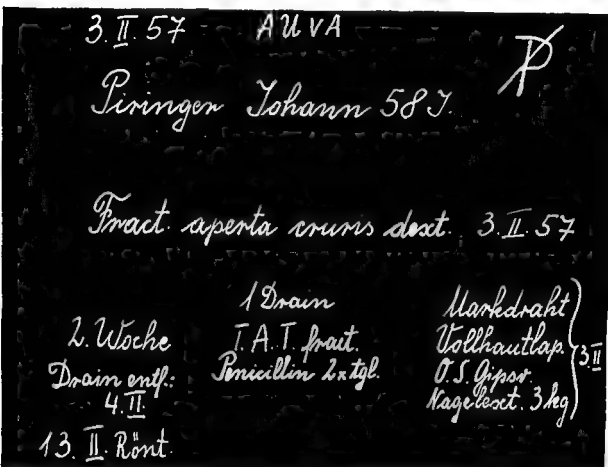 3. II. 57 AUVA P
Piringer Johann 58 J.
Fract. aperta cruris dext. 3. II. 57
2. Woche
Drain entf.:
4. II.
13. II. Rönt.
1 Drain
T. A. T. fract.
Penicillin 2x tgl.
Markdraht
Vollhautlap.
O. S. Gipsv.
Nagelext. 3 kg
3. II